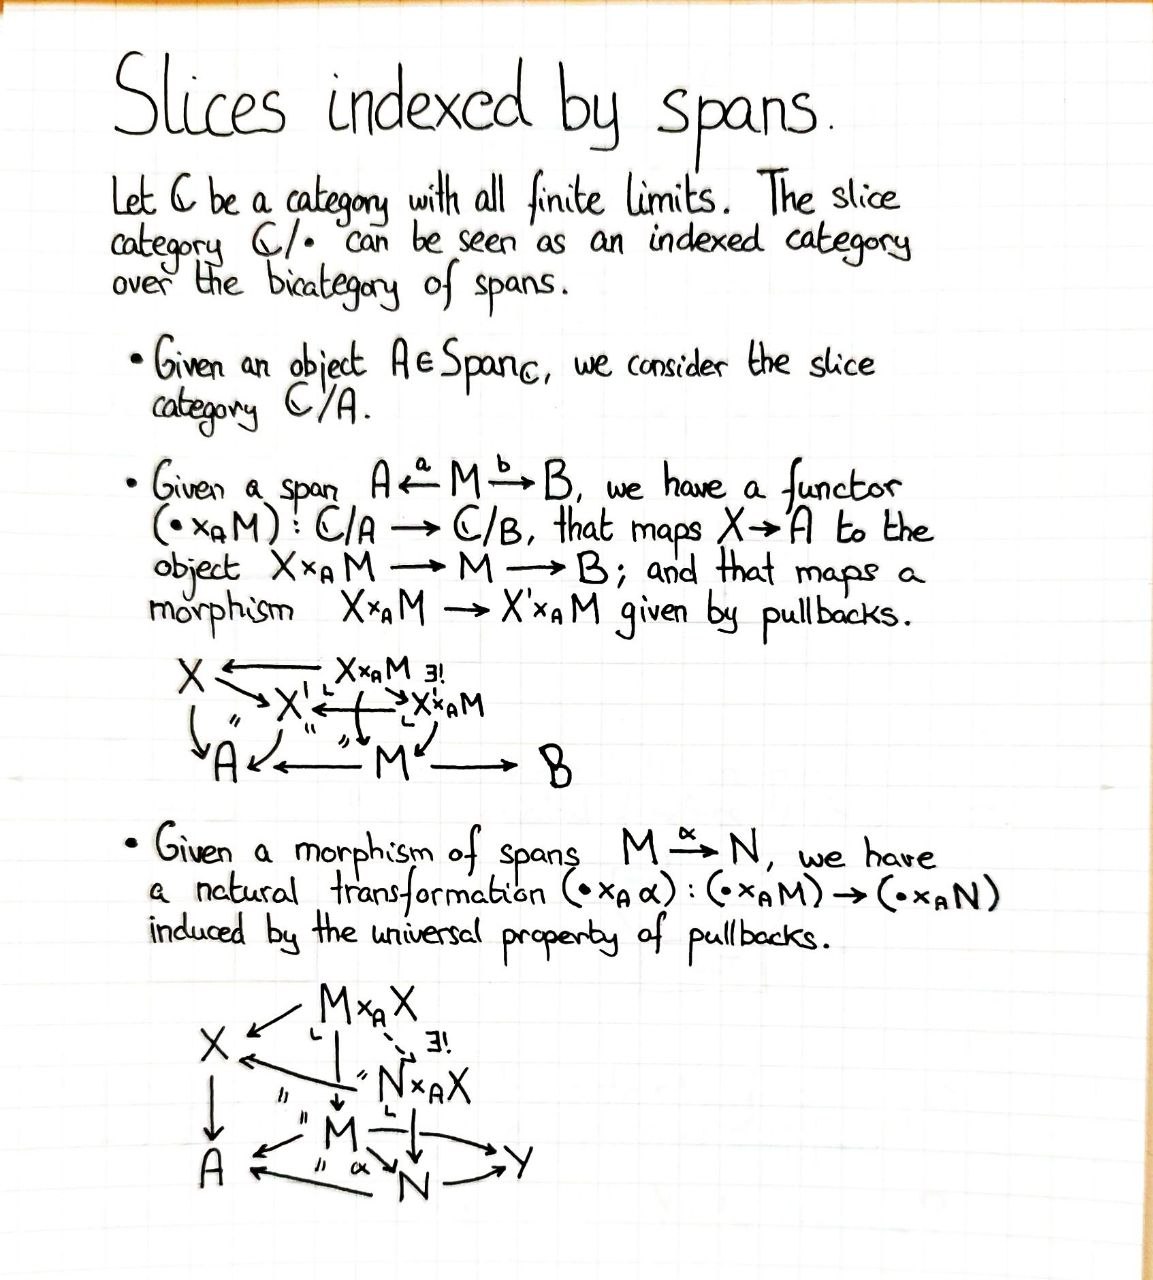 Slices indexed by spans.
Let ℂ be a category with all finite limits. The slice
category ℂ/• can be seen as an indexed category
over the bicategory of spans.
• Given an object A∈Spanℂ, we consider the slice
category ℂ/A.
• Given a span A ←a M →b B, we have a functor
(•×_A M) : ℂ/A → ℂ/B, that maps X→A to the
object X×_A M → M → B; and that maps a
morphism X×_A M → X'×_A M given by pullbacks.
X ← X×_A M ∃!
X' ← X'×_A M
A ← M → B
• Given a morphism of spans M →α N, we have
a natural transformation (•×_A α) : (•×_A M) → (•×_A N)
induced by the universal property of pullbacks.
M×_A X
X ∃!
N×_A X
M
A α N Y